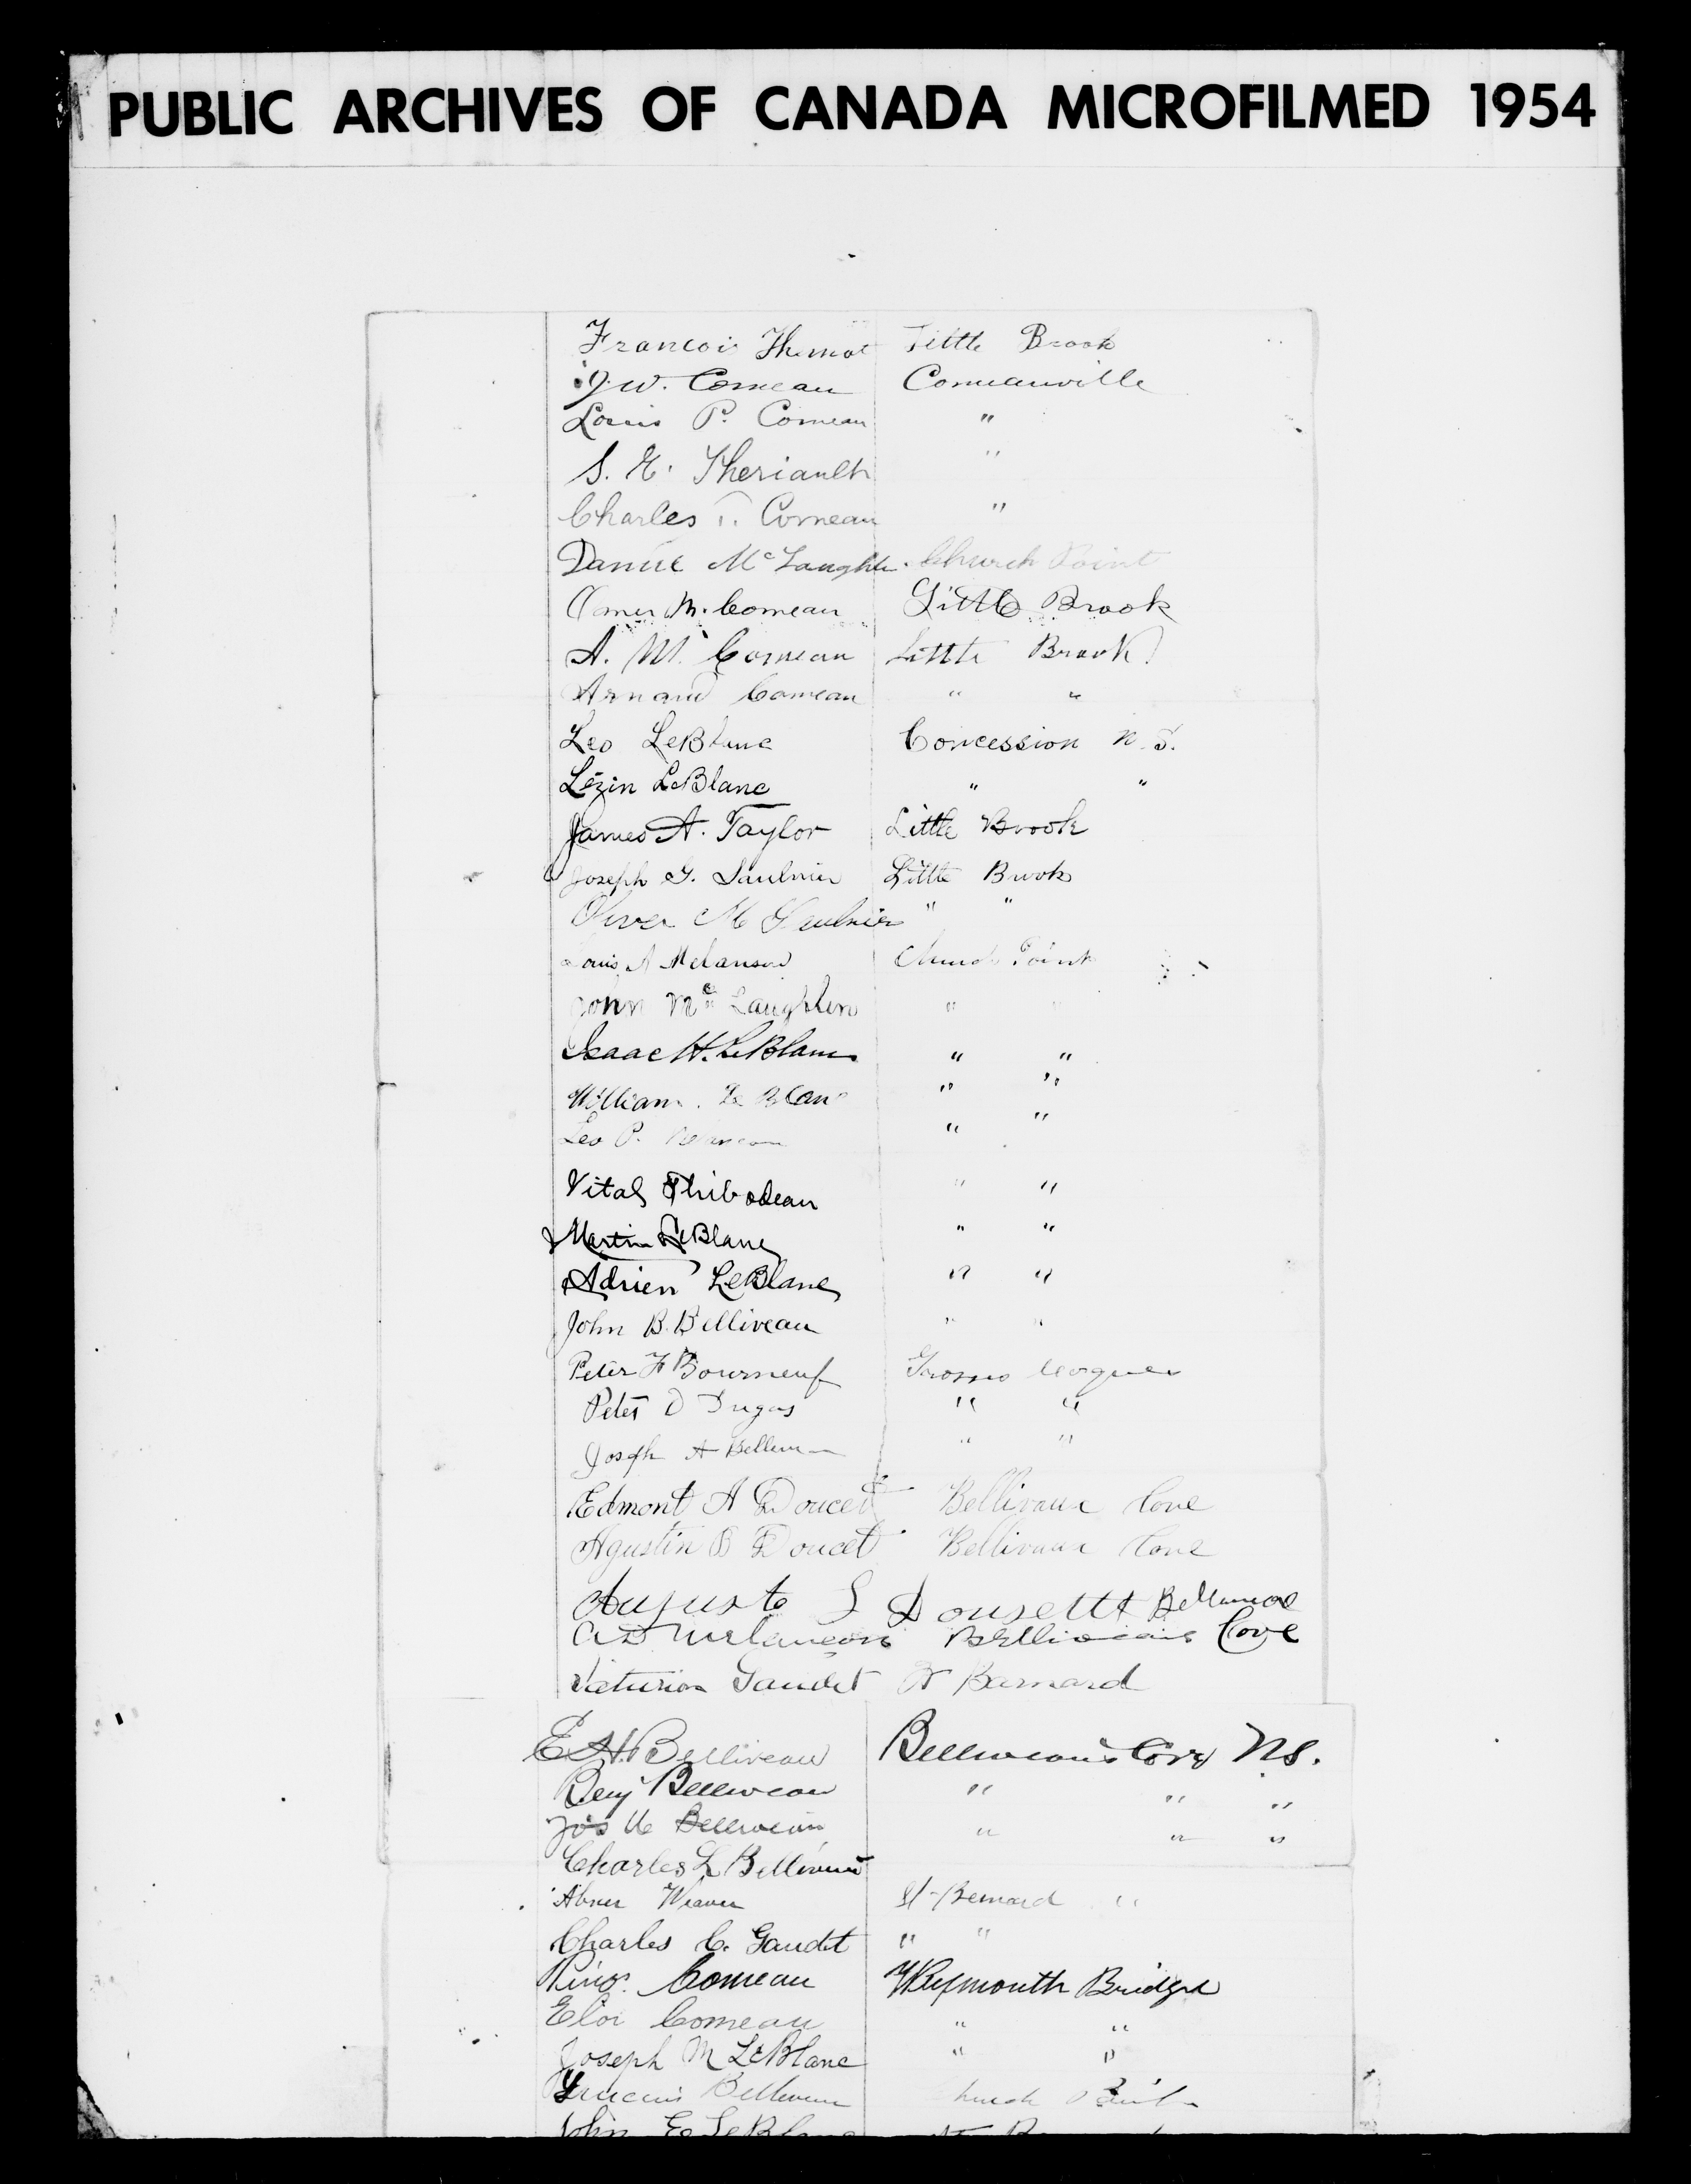 PUBLIC ARCHIVES OF CANADA MICROFILMED 1954
Francois Little Brook
J. W. Comeau Comeauville
Louis P. Comeau "
S. E. Theriault "
Charles T. Comeau "
Daniel McLaughlin Church Point
Omer M. Comeau Little Brook
A. M. Comeau Little Brook
Arnand Comeau " "
Leo LeBlanc Concession N. S.
Lézin LeBlanc " "
James A. Taylor Little Brook
Joseph G. Saulnier Little Brook
Oliver M Saulnier " "
Louis A Melanson Church Point
John Mc Laughlin " "
Isaac H. LeBlanc " "
William Le Blanc " "
Leo P. Melancon " "
Vital Thibodeau " "
Martin LeBlanc " "
Adrien LeBlanc " "
John B. Belliveau " "
Peter F Bourneuf Grosses Coques
Peter D Dugas " "
Joseph A Belliveau " "
Edmont A Doucet Belliveaux Cove
Agustin B Doucet Belliveaux Cove
Auguste Cove
A D Melancon Belliveaus Cove
Gaudet St Barnard
E. H. Belliveau Belliveau's Cove N.S.
Benj Belliveau " " "
Jos Belliveau " " "
Charles L Belliveau
Abner Weaver St-Bernard "
Charles C. Gaudet " "
Comeau Weymouth Bridge
Eloi Comeau " "
Joseph M LeBlanc " "
Belliveau Church Point
John E LeBlanc